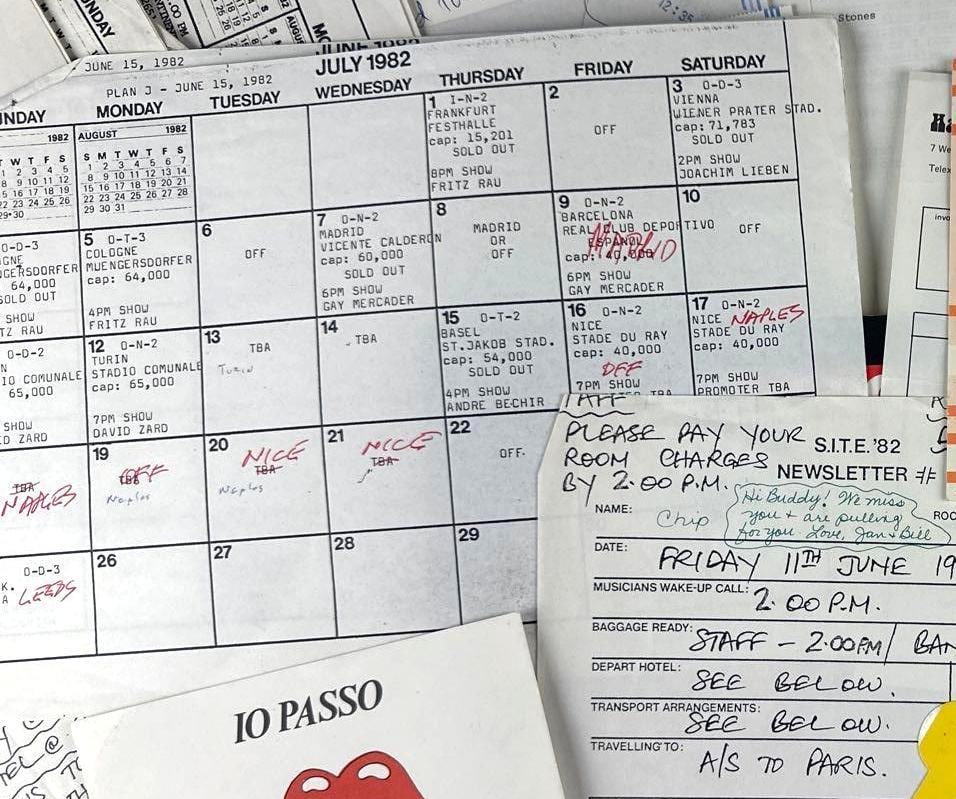 JUNE 15, 1982
JUNE 1982
PLAN J - JUNE 15, 1982
JULY 1982
Stones
MONDAY
TUESDAY
WEDNESDAY
THURSDAY
FRIDAY
SATURDAY
1982
T W T F S
AUGUST 1982
S M T W T F S
1 2 3 4 5 6 7
8 9 10 11 12 13 14
15 16 17 18 19 20 21
22 23 24 25 26 27 28
29 30 31
1 I-N-2
FRANKFURT
FESTHALLE
cap: 15,201
SOLD OUT
8PM SHOW
FRITZ RAU
2
OFF
3 O-D-3
VIENNA
WIENER PRATER STAD.
cap: 71,783
SOLD OUT
2PM SHOW
JOACHIM LIEBEN
O-D-3
64,000
SOLD OUT
SHOW
RAU
5 O-T-3
COLOGNE
MUENGERSDORFER
cap: 64,000
4PM SHOW
FRITZ RAU
6
OFF
7 O-N-2
MADRID
VICENTE CALDERON
cap: 60,000
SOLD OUT
6PM SHOW
GAY MERCADER
8
MADRID
OR
OFF
9 O-N-2
BARCELONA
REAL CLUB DEPORTIVO
ESPANOL
MADRID
cap: 40,000
6PM SHOW
GAY MERCADER
10
OFF
O-D-2
COMUNALE
65,000
SHOW
ZARD
12 O-N-2
TURIN
STADIO COMUNALE
cap: 65,000
7PM SHOW
DAVID ZARD
13
TBA
Turin
14
TBA
15 O-T-2
BASEL
ST.JAKOB STAD.
cap: 54,000
SOLD OUT
4PM SHOW
ANDRE BECHIR
16 O-N-2
NICE
STADE DU RAY
cap: 40,000
OFF
7PM SHOW
17 O-N-2
NICE NAPLES
STADE DU RAY
cap: 40,000
7PM SHOW
PROMOTER TBA
TBA
NAPLES
19
TBA
OFF
Naples
20
NICE
TBA
Naples
21
NICE
TBA
22
OFF.
O-D-3
LEEDS
26
27
28
29
PLEASE PAY YOUR
ROOM CHARGES
BY 2.00 P.M.
S.I.T.E.'82
NEWSLETTER #
NAME: Chip
Hi Buddy! We miss
you + are pulling
for you. Love, Jan & Bill
DATE: FRIDAY 11TH JUNE 19
MUSICIANS WAKE-UP CALL: 2.00 P.M.
BAGGAGE READY: STAFF - 2.00PM/
DEPART HOTEL: SEE BELOW.
TRANSPORT ARRANGEMENTS: SEE BELOW.
TRAVELLING TO: A/S TO PARIS.
IO PASSO